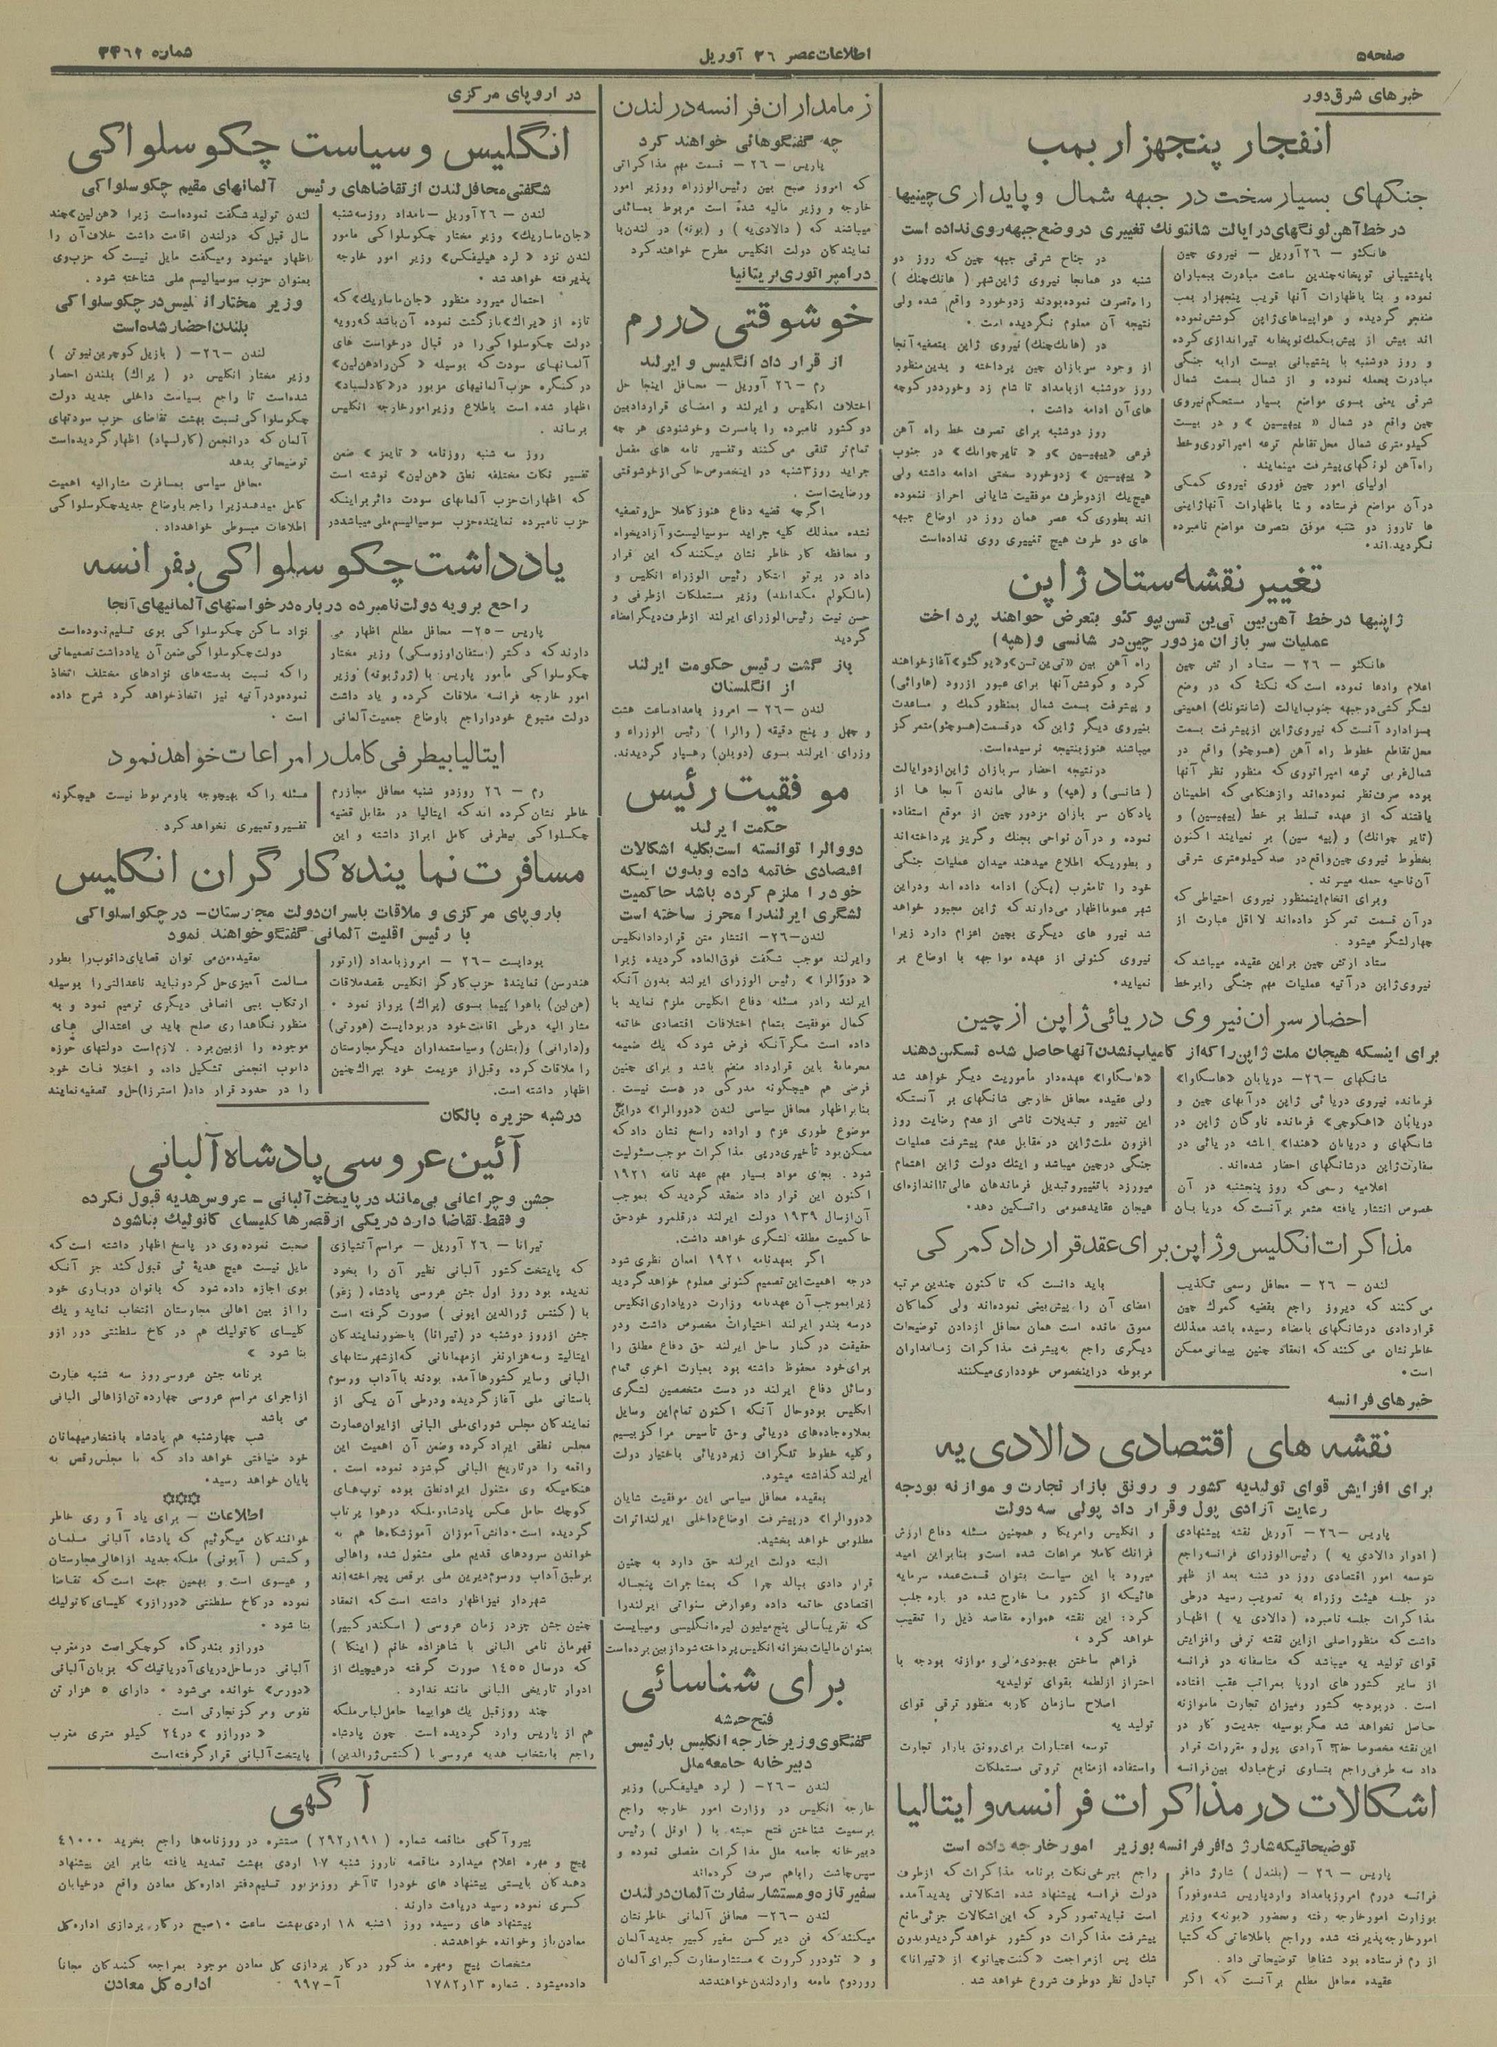 صفحه ۵
اطلاعات عصر ۲۶ آوریل
شماره ۳۴۶۲
خبرهای شرق دور
انفجار پنجهزار بمب
جنگهای بسیار سخت در جبهه شمال و پایداری چینیها
در خط آهن لونگهای در ایالت شانتونك تغییری در وضع جبهه روی نداده است
هانکئو - ۲۶ آوریل - نیروی چین
با پشتیبانی توپخانه چندین ساعت مبادرت ببمباران
نموده و بنا باظهارات آنها قریب پنجهزار بمب
منفجر گردیده و هواپیماهای ژاپن کوشش نموده
اند بیش از پیش بکمك توپخانه تیراندازی کرده
و روز دوشنبه با پشتیبانی بیست ارابه جنگی
مبادرت بحمله نموده و از شمال بسمت شمال
شرقی یعنی بسوی مواضع بسیار مستحکم نیروی
چین واقع در شمال « پیهیسین » و در بیست
کیلومتری شمال محل تقاطع ترعه امپراتوری و خط
راه آهن لونگهای پیشرفت مینمایند .
اولیای امور چین فوری نیروی کمکی
در آن مواضع فرستاده و بنا باظهارات آنها ژاپنی
ها تا روز دو شنبه موفق بتصرف مواضع نامبرده
نگردیده اند.
در جناح شرقی جبهه چین که روز دو
شنبه در همانجا نیروی ژاپن شهر ( هانك چنك )
را تصرف نموده بودند زد و خورد واقع شده ولی
نتیجه آن معلوم نگردیده است .
در (هانك چنك) نیروی ژاپن بتصفیه آنجا
از وجود سربازان چین پرداخته و بدین منظور
روز دوشنبه از بامداد تا شام زد و خورد در کوچه
های آن ادامه داشت .
روز دوشنبه برای تصرف خط راه آهن
فرعی «پیهیسین» و « تایرچوانك » در جنوب
« پیهیسین » زد و خورد سختی ادامه داشته ولی
هیچیك از دو طرف موفقیت شایانی احراز ننموده
اند بطوری که عصر همان روز در اوضاع جبهه
های دو طرف هیچ تغییری روی نداده است
تغییر نقشه ستاد ژاپن
ژاپنیها در خط آهن بین تی‌ین تسن‌پو کئو بتعرض خواهند پرداخت
عملیات سر بازان مزدور چین در شانسی و (هپه)
هانکئو - ۲۶ - ستاد ارتش چین
اعلام و ادعا نموده است که نکتهٔ که در وضع
لشگرکشی در جبهه جنوب ایالت (شانتونك) اهمیتی
بسزا دارد آنست که نیروی ژاپن از پیشرفت بسمت
محل تقاطع خطوط راه آهن (هسوچئو) واقع در
شمال غربی ترعه امپراتوری که منظور نظر آنها
بوده صرف نظر نموده‌اند و از هنگامی که اطمینان
یافتند که از عهده تسلط بر خط (پیهیسین) و
(تایر چوانك) و (پیه سین) بر نمیایند اکنون
بخطوط نیروی چین واقع در صد کیلومتری شرقی
آن ناحیه حمله میبرند .
و برای انجام این منظور نیروی احتیاطی که
در آن قسمت تمرکز داده‌اند لااقل عبارت از
چهار لشگر میشود .
ستاد ارتش چین بر این عقیده میباشد که
نیروی ژاپن در آتیه عملیات مهم جنگی را بر خط
راه آهن بین «تی‌ین تسن» و «پو کئو» آغاز خواهند
کرد و کوشش آنها برای عبور از رود (هاوائی)
و پیشرفت بسمت شمال بمنظور کمك و مساعدت
بنیروی دیگر ژاپن که در قسمت (هسوچئو) متمرکز
میباشند هنوز بنتیجه نرسیده است.
در نتیجه احضار سربازان ژاپن از دو ایالت
( شانسی) و (هپه) و خالی ماندن آنجا ها از
پادگان سر بازان مزدور چین از موقع استفاده
نموده و در آن نواحی بجنك و گریز پرداخته‌اند
و بطوریکه اطلاع میدهند میدان عملیات جنگی
خود را تا مغرب (پکن) ادامه داده‌اند و در این
شهر عموما اظهار می‌دارند که ژاپن مجبور خواهد
شد نیرو های دیگری بچین اعزام دارد زیرا
نیروی کنونی از عهده مواجهه با اوضاع بر
نمیاید.
احضار سران نیروی دریائی ژاپن از چین
برای اینکه هیجان ملت ژاپن را که از کامیاب نشدن آنها حاصل شده تسکین دهند
شانکهای - ۲۶ - دریابان «هاسگاوا»
فرمانده نیروی دریائی ژاپن در آبهای چین و
دریابان «اهکوچی» فرمانده ناوگان ژاپن در
شانگهای و دریابان «هندا» آتاشه دریائی در
سفارت ژاپن در شانگهای احضار شده‌اند.
اعلامیه رسمی که روز پنجشنبه در آن
خصوص انتشار یافته مشعر بر آنست که دریابان
«هاسگاوا» عهده‌دار مأموریت دیگر خواهد شد
ولی عقیده محافل خارجی شانگهای بر آنستکه
این تغییر و تبدیلات ناشی از عدم رضایت روز
افزون ملت ژاپن در مقابل عدم پیشرفت عملیات
جنگی در چین میباشد و اینك دولت ژاپن اهتمام
میورزد با تغییر و تبدیل فرماندهان عالی تا اندازه‌ای
هیجان عقاید عمومی را تسکین دهد.
مذاکرات انگلیس و ژاپن برای عقد قرار داد کمرکی
لندن - ۲۶ - محافل رسمی تکذیب
می کنند که دیروز راجع بقضیه گمرك چین
قراردادی در شانگهای بامضاء رسیده باشد معذلك
خاطر نشان می کنند که انعقاد چنین پیمانی ممکن
است.
باید دانست که تا کنون چندین مرتبه
امضای آن را پیش‌بینی نموده‌اند ولی کماکان
معوق مانده است همان محافل از دادن توضیحات
دیگری راجع به پیشرفت مذاکرات زمامداران
مربوطه در اینخصوص خودداری میکنند
خبرهای فرانسه
نقشه های اقتصادی دالادی یه
برای افزایش قوای تولیدیه کشور و رونق بازار تجارت و موازنه بودجه
رعایت آزادی پول و قرار داد پولی سه دولت
پاریس - ۲۶ - آوریل نقشه پیشنهادی
( ادوار دالادی یه ) رئیس‌الوزرای فرانسه راجع
بتوسعه امور اقتصادی روز دو شنبه بعد از ظهر
در جلسه هیئت وزراء به تصویب رسید در طی
مذاکرات جلسه نامبرده ( دالادی یه ) اظهار
داشت که منظور اصلی از این نقشه ترقی و افزایش
قوای تولید یه میباشد که متأسفانه در فرانسه
از سایر کشور های اروپا بمراتب عقب افتاده
است . در بودجه کشور و میزان تجارت ما موازنه
حاصل نخواهد شد مگر بوسیله جدیت و کار در
این نقشه مخصوصا حفظ آزادی پول و مقررات قرار
داد سه طرفی راجع بتساوی نرخ مبادله بین فرانسه
و انگلیس و امریکا و همچنین مسئله دفاع ارزش
فرانك کاملا مراعات شده است و بنابراین امید
میرود با این سیاست بتوان قسمت عمده سرمایه
هائیکه از کشور ما خارج شده دو باره جلب
کرد: این نقشه همواره مقاصد ذیل را تعقیب
خواهد کرد ،
فراهم ساختن بهبودی ملی و موازنه بودجه با
احتراز از لطمه بقوای تولیدیه
اصلاح سازمان کار به منظور ترقی قوای
تولید یه
توسعه اعتبارات برای رونق بازار تجارت
و استفاده از منابع ثروتی مستملکات
اشکالات در مذاکرات فرانسه و ایتالیا
توضیحاتیکه شارژ دافر فرانسه بوزیر امور خارجه داده است
پاریس - ۲۶ - (بلندل) شارژ دافر
فرانسه در رم امروز بامداد وارد پاریس شده و فوراً
بوزارت امور خارجه رفته و بحضور «بونه» وزیر
امور خارجه پذیرفته شده و راجع باطلاعاتی که کتبا
از رم فرستاده بود شفاها توضیحاتی داد .
عقیده محافل مطلع بر آنست که اگر
راجع ببرخی نکات برنامه مذاکرات که از طرف
دولت فرانسه پیشنهاد شده اشکالاتی پدید آمده
است نباید تصور کرد که این اشکالات جزئی مانع
پیشرفت مذاکرات دو کشور خواهد گردید و بدون
شك پس از مراجعت «کنت چیانو» از «تیرانا»
تبادل نظر دو طرف شروع خواهد شد .
زمامداران فرانسه در لندن
چه گفتگوهائی خواهند کرد
پاریس - ۲۶ - قسمت مهم مذاکراتی
که امروز صبح بین رئیس‌الوزراء و وزیر امور
خارجه و وزیر مالیه شده است مربوط بمسائلی
میباشند که ( دالادی‌یه ) و (بونه) در لندن با
نمایندگان دولت انگلیس مطرح خواهند کرد
در امپراتوری بریتانیا
خوشوقتی در رم
از قرارداد انگلیس و ایرلند
رم - ۲۶ آوریل - محافل اینجا حل
اختلاف انگلیس و ایرلند و امضای قرارداد بین
دو کشور نامبرده را با مسرت و خوشنودی هر چه
تمام‌تر تلقی می کنند و تفسیر نامه های مفصل
جراید روز ۳ شنبه در اینخصوص حاکی از خوشوقتی
و رضایت است .
اگرچه قضیه دفاع هنوز کاملا حل و تصفیه
نشده معذلك کلیه جراید سوسیالیست و آزادیخواه
و محافظه کار خاطر نشان میکنند که این قرار
داد در پرتو ابتکار رئیس الوزراء انگلیس و
(مالکولم مکدانلد) وزیر مستملکات از طرفی و
حسن نیت رئیس‌الوزرای ایرلند از طرف دیگر امضاء
گردید
باز گشت رئیس حکومت ایرلند
از انگلستان
لندن - ۲۶ - امروز بامداد ساعت هشت
و چهل و پنج دقیقه ( والرا ) رئیس الوزراء و
وزرای ایرلند بسوی (دوبلن) رهسپار گردیدند.
موفقیت رئیس
حکمت ایرلند
دووالرا توانسته است بکلیه اشکالات
اقتصادی خاتمه داده و بدون اینکه
خود را ملزم کرده باشد حاکمیت
لشگری ایرلند را محرز ساخته است
لندن - ۲۶ - انتشار متن قرارداد انگلیس
و ایرلند موجب شگفت فوق‌العاده گردیده زیرا
« دووالرا » رئیس الوزرای ایرلند بدون آنکه
ایرلند را در مسئله دفاع انگلیس ملزم نماید با
کمال موفقیت بتمام اختلافات اقتصادی خاتمه
داده است مگر آنکه فرض شود که یك ضمیمه
محرمانهٔ باین قرارداد منضم باشد و برای چنین
فرضی هم هیچگونه مدرکی در دست نیست .
بنابر اظهار محافل سیاسی لندن «دووالرا» در این
موضوع طوری عزم و اراده راسخ نشان داد که
ممکن بود تأخیر در پی مذاکرات موجب مسئولیت
شود . بجای مواد بسیار مهم عهد نامه ۱۹۲۱
اکنون این قرار داد منعقد گردید که بموجب
آن از سال ۱۹۳۹ دولت ایرلند در قلمرو خود حق
حاکمیت مطلقه لشگری خواهد داشت.
اگر بعهدنامه ۱۹۲۱ امعان نظری شود
درجه اهمیت این تصمیم کنونی معلوم خواهد گردید
زیرا بموجب آن عهدنامه وزارت دریاداری انگلیس
در سه بندر ایرلند اختیارات مخصوص داشت و در
حقیقت در کنار ساحل ایرلند حق دفاع مطلق را
برای خود محفوظ داشته بود بعبارت اخری تمام
وسائل دفاع ایرلند در دست متخصصین لشگری
انگلیس بود و حال آنکه اکنون تمام این وسایل
بعلاوه جاده‌های دریائی و حق تأسیس مراکز بیسیم
و کلیه خطوط تلگراف زیر دریائی باختیار دولت
ایرلند گذاشته میشود.
بعقیده محافل سیاسی این موفقیت شایان
«دووالرا» در پیشرفت اوضاع داخلی ایرلند اثرات
مطلوبی خواهد بخشید.
البته دولت ایرلند حق دارد به چنین
قرار دادی ببالد چرا که بمشاجرات پنجساله
اقتصادی خاتمه داده و عوارض سنواتی ایرلند را
که تقریبا سالی پنج میلیون لیره انگلیسی و میبایست
بعنوان مالیات بخزانه انگلیس پرداخته شود از بین برده است
برای شناسائی
فتح حبشه
گفتگوی وزیر خارجه انگلیس با رئیس
دبیرخانه جامعه ملل
لندن - ۲۶ - ( لرد هیلیفکس) وزیر
خارجه انگلیس در وزارت امور خارجه راجع
برسمیت شناختن فتح حبشه با ( اونل ) رئیس
دبیرخانه جامعه ملل مذاکرات مفصلی نموده و
سپس چاشت را باهم صرف کرده‌اند
سفیر تازه و مستشار سفارت آلمان در لندن
لندن - ۲۶ - محافل آلمانی خاطر نشان
میکنند که فن دیر کسن سفیر کبیر جدید آلمان
و « تئودور کروت » مستشار سفارت کبرای آلمان
روز دوم ماه مه وارد لندن خواهند شد
در اروپای مرکزی
انگلیس و سیاست چکوسلواکی
شگفتی محافل لندن از تقاضاهای رئیس آلمانهای مقیم چکوسلواکی
لندن - ۲۶ آوریل - بامداد روز سه شنبه
«جان ماساریك» وزیر مختار چکوسلواکی مامور
لندن نزد «لرد هیلیفکس» وزیر امور خارجه
پذیرفته خواهد شد .
احتمال میرود منظور «جان ماساریك» که
تازه از «پراك» بازگشت نموده آن باشد که رویه
دولت چکوسلواکی را در قبال درخواست های
آلمانهای سودت که بوسیله « کن راد هن‌لین»
در کنگره حزب آلمانیهای مزبور در «کادلسباد»
اظهار شده است باطلاع وزیر امور خارجه انگلیس
برساند .
روز سه شنبه روزنامه « تایمز » ضمن
تفسیر نکات مختلفه نطق «هن‌لین» نوشته است
که اظهارات حزب آلمانهای سودت دائر بر اینکه
حزب نامبرده نماینده حزب سوسیالیسم ملی میباشد در
لندن تولید شگفت نموده است زیرا «هن‌لین» چند
سال قبل که در لندن اقامت داشت خلاف آن را
اظهار مینمود و میگفت مایل نیست که حزب وی
بعنوان حزب سوسیالیسم ملی شناخته شود .
وزیر مختار انگلیس در چکوسلواکی
بلندن احضار شده است
لندن - ۲۶ - ( بازیل کوچرین نیوتن )
وزیر مختار انگلیس در ( پراك) بلندن احضار
شده است تا راجع بسیاست داخلی جدید دولت
چکوسلواکی نسبت بهشت تقاضای حزب سودتهای
آلمان که در انجمن (کارلسباد) اظهار گردیده است
توضیحاتی بدهد
محافل سیاسی بمسافرت مشارالیه اهمیت
کامل میدهند زیرا راجع باوضاع جدید چکوسلواکی
اطلاعات مبسوطی خواهد داد .
یادداشت چکوسلواکی بفرانسه
راجع برویه دولت نامبرده درباره درخواستهای آلمانیهای آنجا
پاریس - ۲۵ - محافل مطلع اظهار می
دارند که دکتر (ستفان اوزوسکی) وزیر مختار
چکوسلواکی مأمور پاریس با (ژرژ بونه) وزیر
امور خارجه فرانسه ملاقات کرده و یاد داشت
دولت متبوع خود را راجع باوضاع جمعیت آلمانی
نژاد ساکن چکوسلواکی بوی تسلیم نموده است
دولت چکوسلواکی ضمن آن یادداشت تصمیماتی
را که نسبت بدسته‌های نژادهای مختلف اتخاذ
نموده و در آتیه نیز اتخاذ خواهد کرد شرح داده
است .
ایتالیا بیطرفی کامل را مراعات خواهد نمود
رم - ۲۶ روز دو شنبه محافل مجاز رم
خاطر نشان کرده اند که ایتالیا در مقابل قضیه
چکسلواکی بیطرفی کامل ابراز داشته و این
مسئله را که بهیچوجه باو مربوط نیست هیچگونه
تفسیر و تعبیری نخواهد کرد .
مسافرت نماینده کارگران انگلیس
باروپای مرکزی و ملاقات با سران دولت مجارستان - در چکواسلواکی
با رئیس اقلیت آلمانی گفتگو خواهند نمود
بوداپست - ۲۶ - امروز بامداد (ارتور
هندرسن) نمایندهٔ حزب کارگر انگلیس بقصد ملاقات
(هن‌لین) با هواپیما بسوی (پراك) پرواز نمود .
مشار الیه در طی اقامت خود در بوداپست (هورتی)
و (دارانی) و (بتلن) و سیاستمداران دیگر مجارستان
را ملاقات کرده و قبل از عزیمت خود بپراك چنین
اظهار داشته است.
بعقیده من می توان قضایای دانوب را بطور
مسالمت آمیزی حل کرد و نباید ناعدالتی را بوسیله
ارتکاب بی انصافی دیگری ترمیم نمود و به
منظور نگاهداری صلح باید بی اعتدالی های
موجوده را از بین برد . لازم است دولتهای حوزه
دانوب انجمنی تشکیل داده و اختلافات خود
را در حدود قرار داد (استرزا) حل و تصفیه نمایند
در شبه جزیره بالکان
آئین عروسی پادشاه آلبانی
جشن و چراغانی بی‌مانند در پایتخت آلبانی - عروس هدیه قبول نکرده
و فقط تقاضا دارد در یکی از قصرها کلیسای کاتولیك بنا شود
تیرانا - ۲۶ آوریل - مراسم آتشبازی
که پایتخت کشور آلبانی نظیر آن را بخود
ندیده بود روز اول جشن عروسی پادشاه ( زغو)
با ( کنتس ژرالدین اپونی ) صورت گرفته است
جشن از روز دوشنبه در (تیرانا) با حضور نمایندگان
ایتالیه و سه هزار نفر از مهمانانی که از شهرستانهای
البانی و سایر کشورها آمده بودند با آداب و رسوم
باستانی ملی آغاز گردیده و در طی آن یکی از
نمایندگان مجلس شورای ملی البانی از ایوان عمارت
مجلس نطقی ایراد کرده و ضمن آن اهمیت این
واقعه را در تاریخ البانی گوشزد نموده است .
هنگامیکه وی مشغول ایراد نطق بوده توپ‌های
کوچك حامل عکس پادشاه و ملکه در هوا پرتاب
گردیده است . دانش‌آموزان آموزشگاه‌ها هم به
خواندن سرودهای قدیم ملی مشغول شده و اهالی
بر طبق آداب و رسوم دیرین ملی برقص پرداخته‌اند
شهردار نیز اظهار داشته است که انعقاد
چنین جشن جز در زمان عروسی ( اسکندر کبیر)
قهرمان نامی البانی با شاهزاده خانم ( اینکا )
که در سال ۱۴۵۵ صورت گرفته در هیچیك از
ادوار تاریخی البانی مانند ندارد .
چند روز قبل یك هواپیما حامل لباس ملکه
هم از پاریس وارد گردیده است . چون پادشاه
راجع بانتخاب هدیه عروسی با (کنتس ژرالدین)
صحبت نموده وی در پاسخ اظهار داشته است که
مایل نیست هیچ هدیهٔ ئی قبول کند جز آنکه
بوی اجازه داده شود که بانوان درباری خود
را از بین اهالی مجارستان انتخاب نماید و یك
کلیسای کاتولیك هم در کاخ سلطنتی دورازو
بنا شود »
برنامه جشن عروسی روز سه شنبه عبارت
از اجرای مراسم عروسی چهارده تن از اهالی البانی
می باشد
شب چهارشنبه هم پادشاه بافتخار میهمانان
خود ضیافتی خواهد داد که با مجلس رقص به
پایان خواهد رسید.
اطلاعات - برای یاد آوری خاطر
خوانندگان میگوئیم که پادشاه آلبانی مسلمان
و کنتس ( آپونی) ملکه جدید از اهالی مجارستان
و عیسوی است و بهمین جهت است که تقاضا
نموده در کاخ سلطنتی «دورازو» کلیسای کاتولیك
بنا شود .
دورازو بندرگاه کوچکی است در مغرب
آلبانی در ساحل دریای آدریاتیك که بزبان آلبانی
«دورس» خوانده می‌شود . دارای ۵ هزار تن
نفوس و مرکز تجارتی است .
« دورازو » در ۲۴ کیلو متری مغرب
پایتخت آلبانی قرار گرفته است
آگهی
پیرو آگهی مناقصه شماره ( ۲۹۲ر۱۹۱) منتشره در روزنامه‌ها راجع بخرید ۴۱۰۰۰
پیچ و مهره اعلام میدارد مناقصه تا روز شنبه ۱۷ اردی بهشت تمدید یافته بنابر این پیشنهاد
دهندگان بایستی پیشنهاد های خود را تا آخر روز مزبور تسلیم دفتر اداره کل معادن واقع در خیابان
کسری نموده رسید دریافت دارند.
پیشنهاد های رسیده روز ۱ شنبه ۱۸ اردی بهشت ساعت ۱۰ صبح در کار پردازی اداره کل
معادن باز و خوانده خواهد شد.
مشخصات پیچ و مهره مذکور در کار پردازی کل معادن موجود بمراجعه کنندگان مجاناً
داده میشود . شماره ۱۷۸۲ر۱۳ آ - ۹۹۷
اداره کل معادن